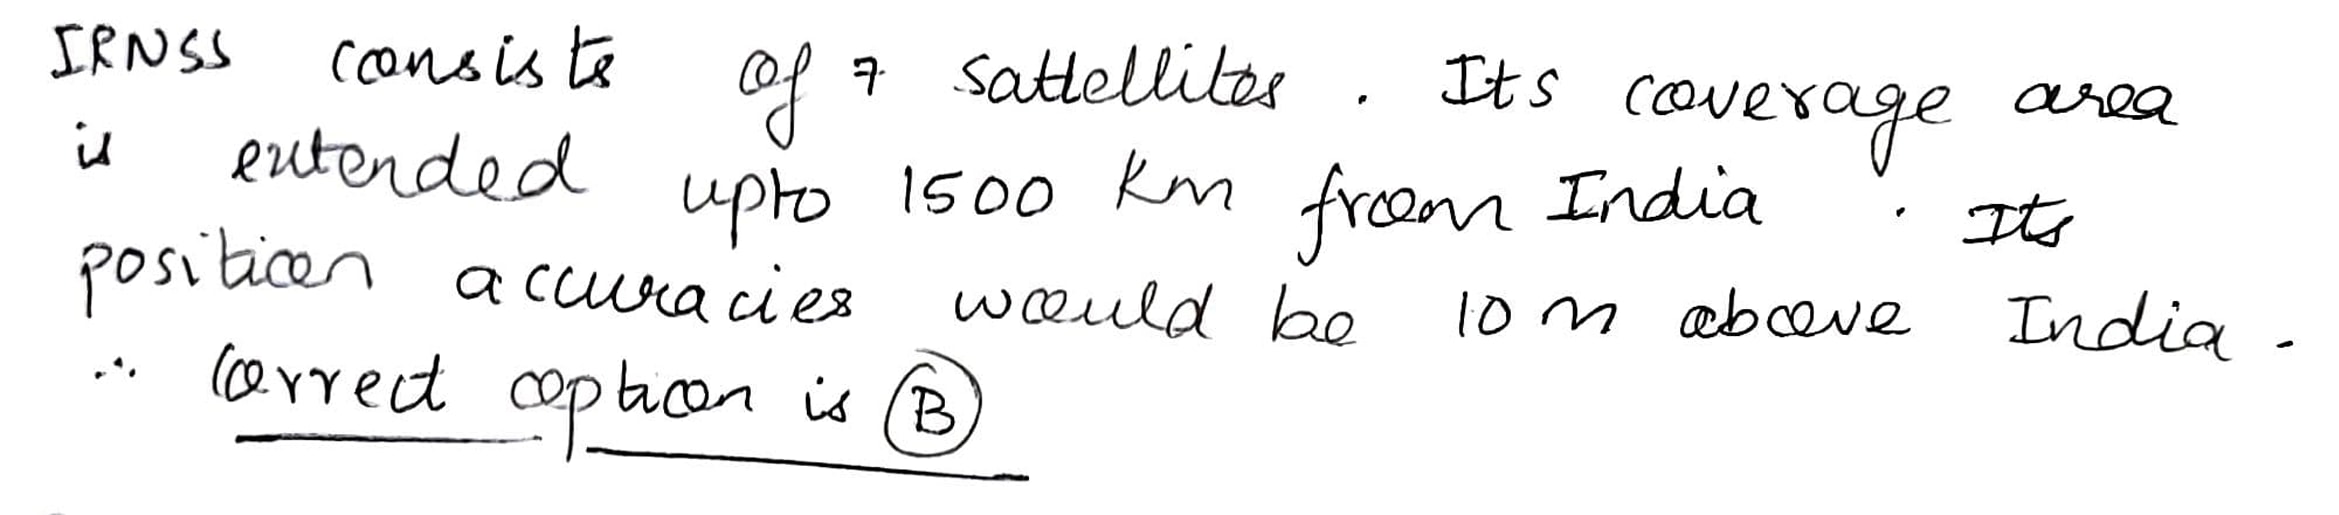 IRNSS consists of 7 sattellites. Its coverage area
is extended upto 1500 Km from India. Its
position accuracies would be 10 m above India.
∴ Correct option is B